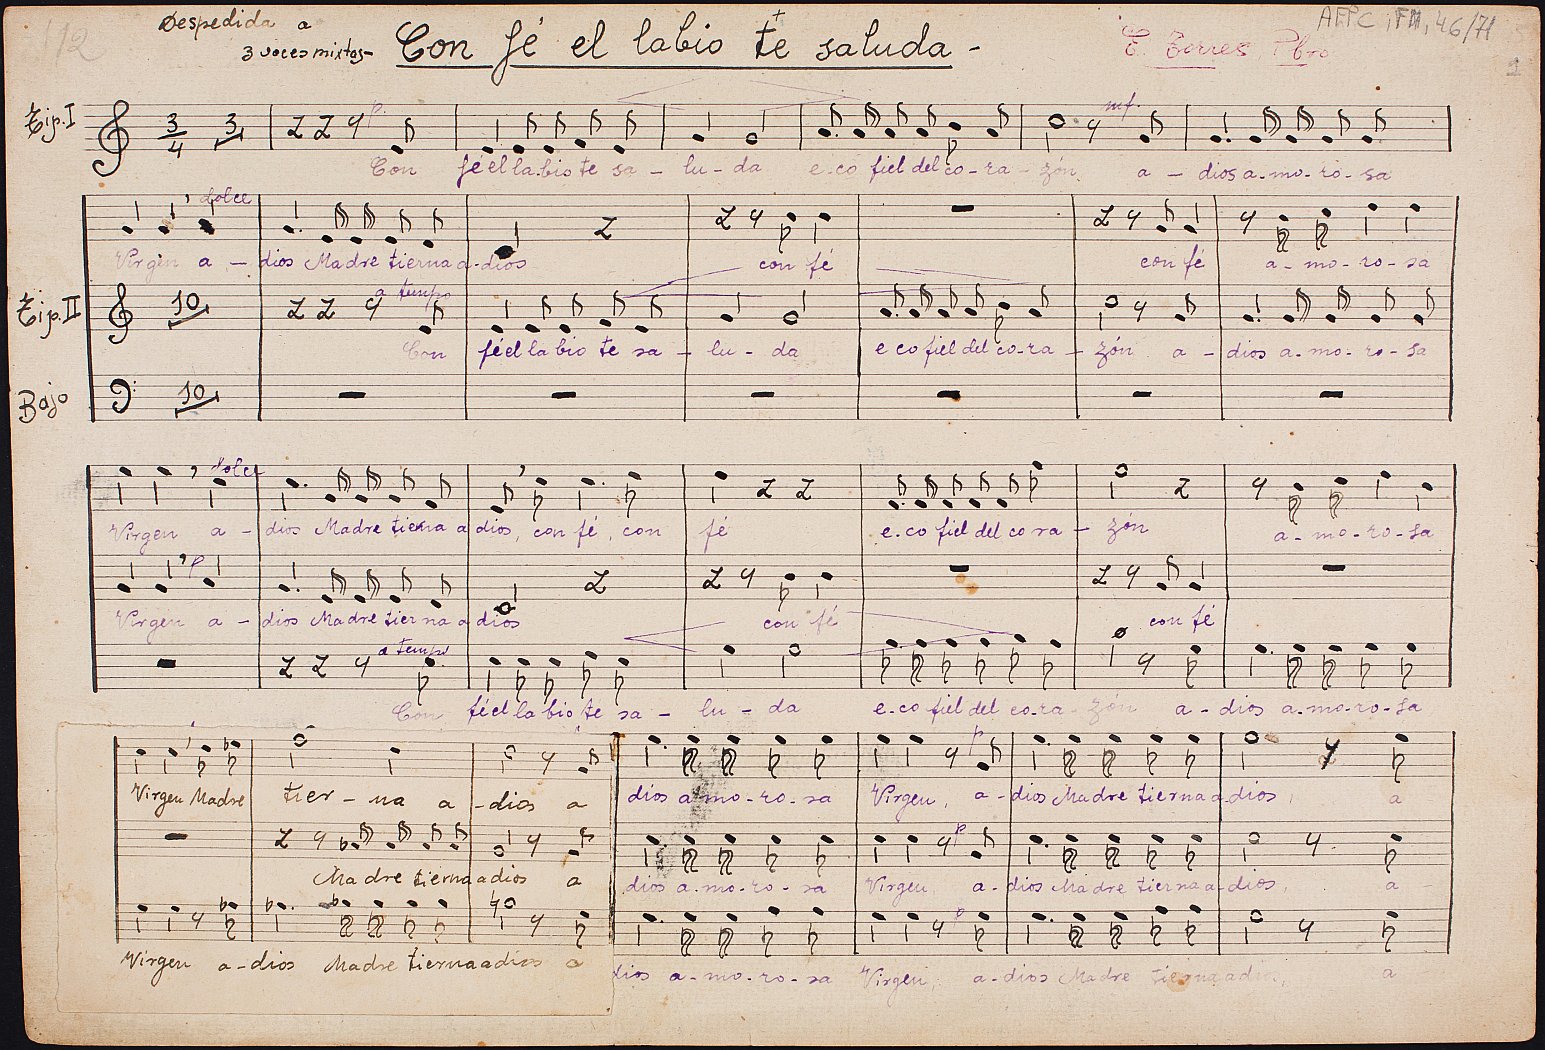 112
Despedida a
3 voces mixtas- Con fé el labio te saluda -
E. Torres, Pbro
AFPC, FM, 46/71
1
Tip. I
3/4 3 p. mf.
Con fé el la-bio te sa - lu - da e-co fiel del co-ra-zón a - dios a-mo-ro-sa
dolce
Virgen a - dios Madre tierna a-dios con fé con fé a-mo-ro-sa
Tip. II 10 a tempo
Con fé el la bio te sa - lu - da e co fiel del co-ra - zón a - dios a-mo-ro-sa
Bajo 10
dolce
Virgen a - dios Madre tierna a dios, con fé, con fé e-co fiel del co ra - zón a-mo-ro-sa
p
Virgen a - dios Madre tier na a dios con fé con fé
a tempo
Con fé el la bio te sa - lu - da e-co fiel del co-ra-zón a-dios a-mo-ro-sa
p
Virgen Madre tier - na a - dios a dios a-mo-ro-sa Virgen, a-dios Madre tierna a-dios, a
p
Madre tierna a dios a dios a-mo-ro-sa Virgen, a-dios Madre tierna a-dios, a
p
Virgen a-dios Madre tierna a dios a dios a-mo-ro-sa Virgen, a-dios Madre tierna a dios, a a